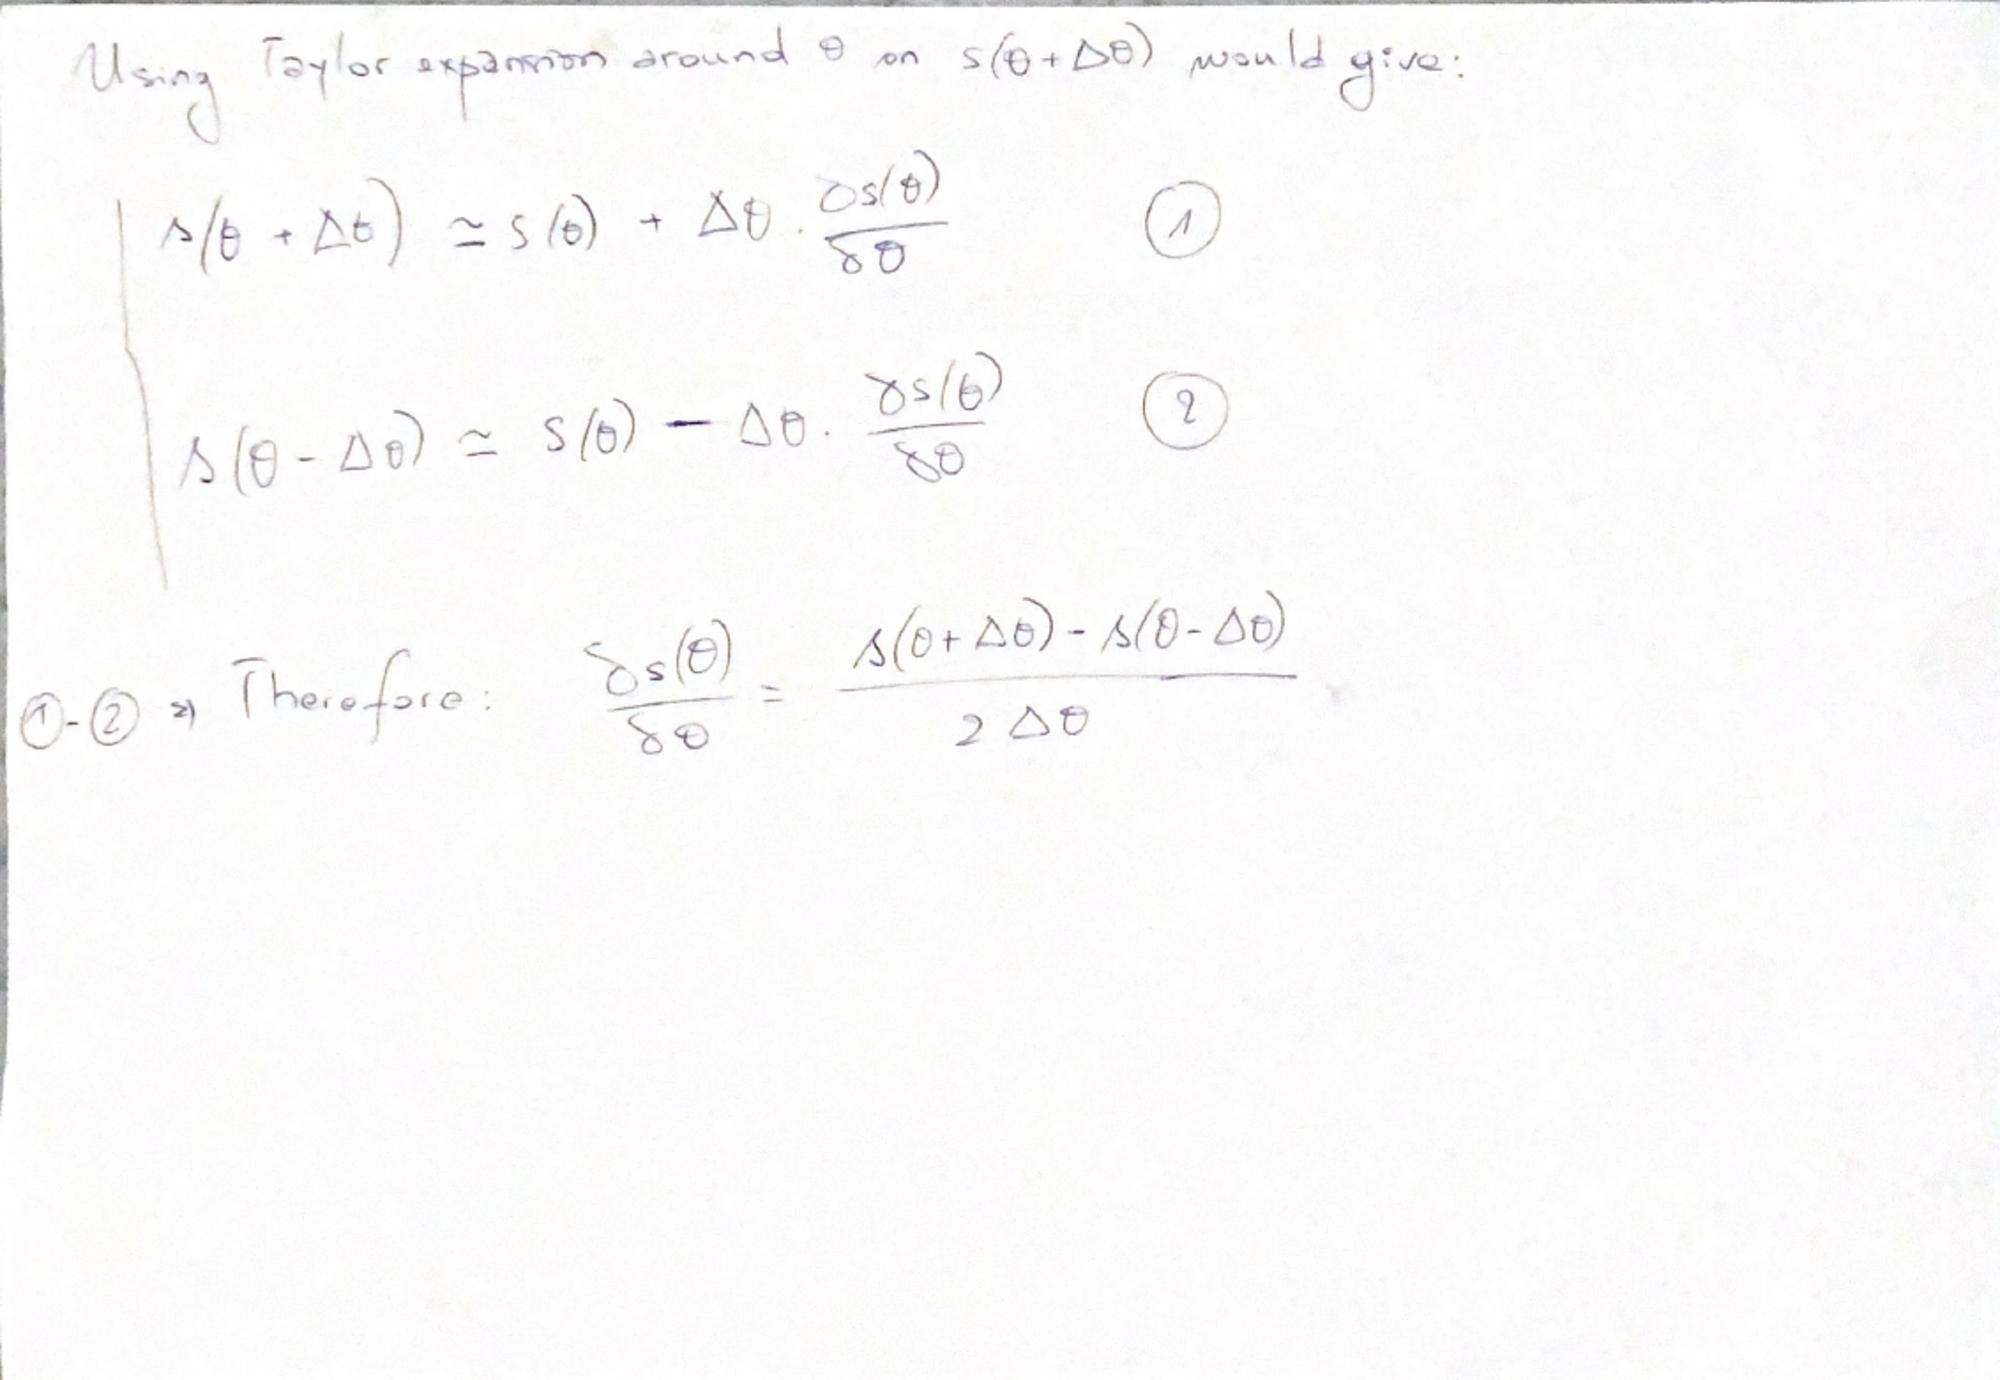 Using Taylor expansion around θ on s(θ+Δθ) would give:
s(θ + Δθ) ≃ s(θ) + Δθ . δs(θ)/δθ ①
s(θ - Δθ) ≃ s(θ) - Δθ . δs(θ)/δθ ②
①-② ⇒ Therefore: δs(θ)/δθ = s(θ+Δθ) - s(θ-Δθ) / 2Δθ